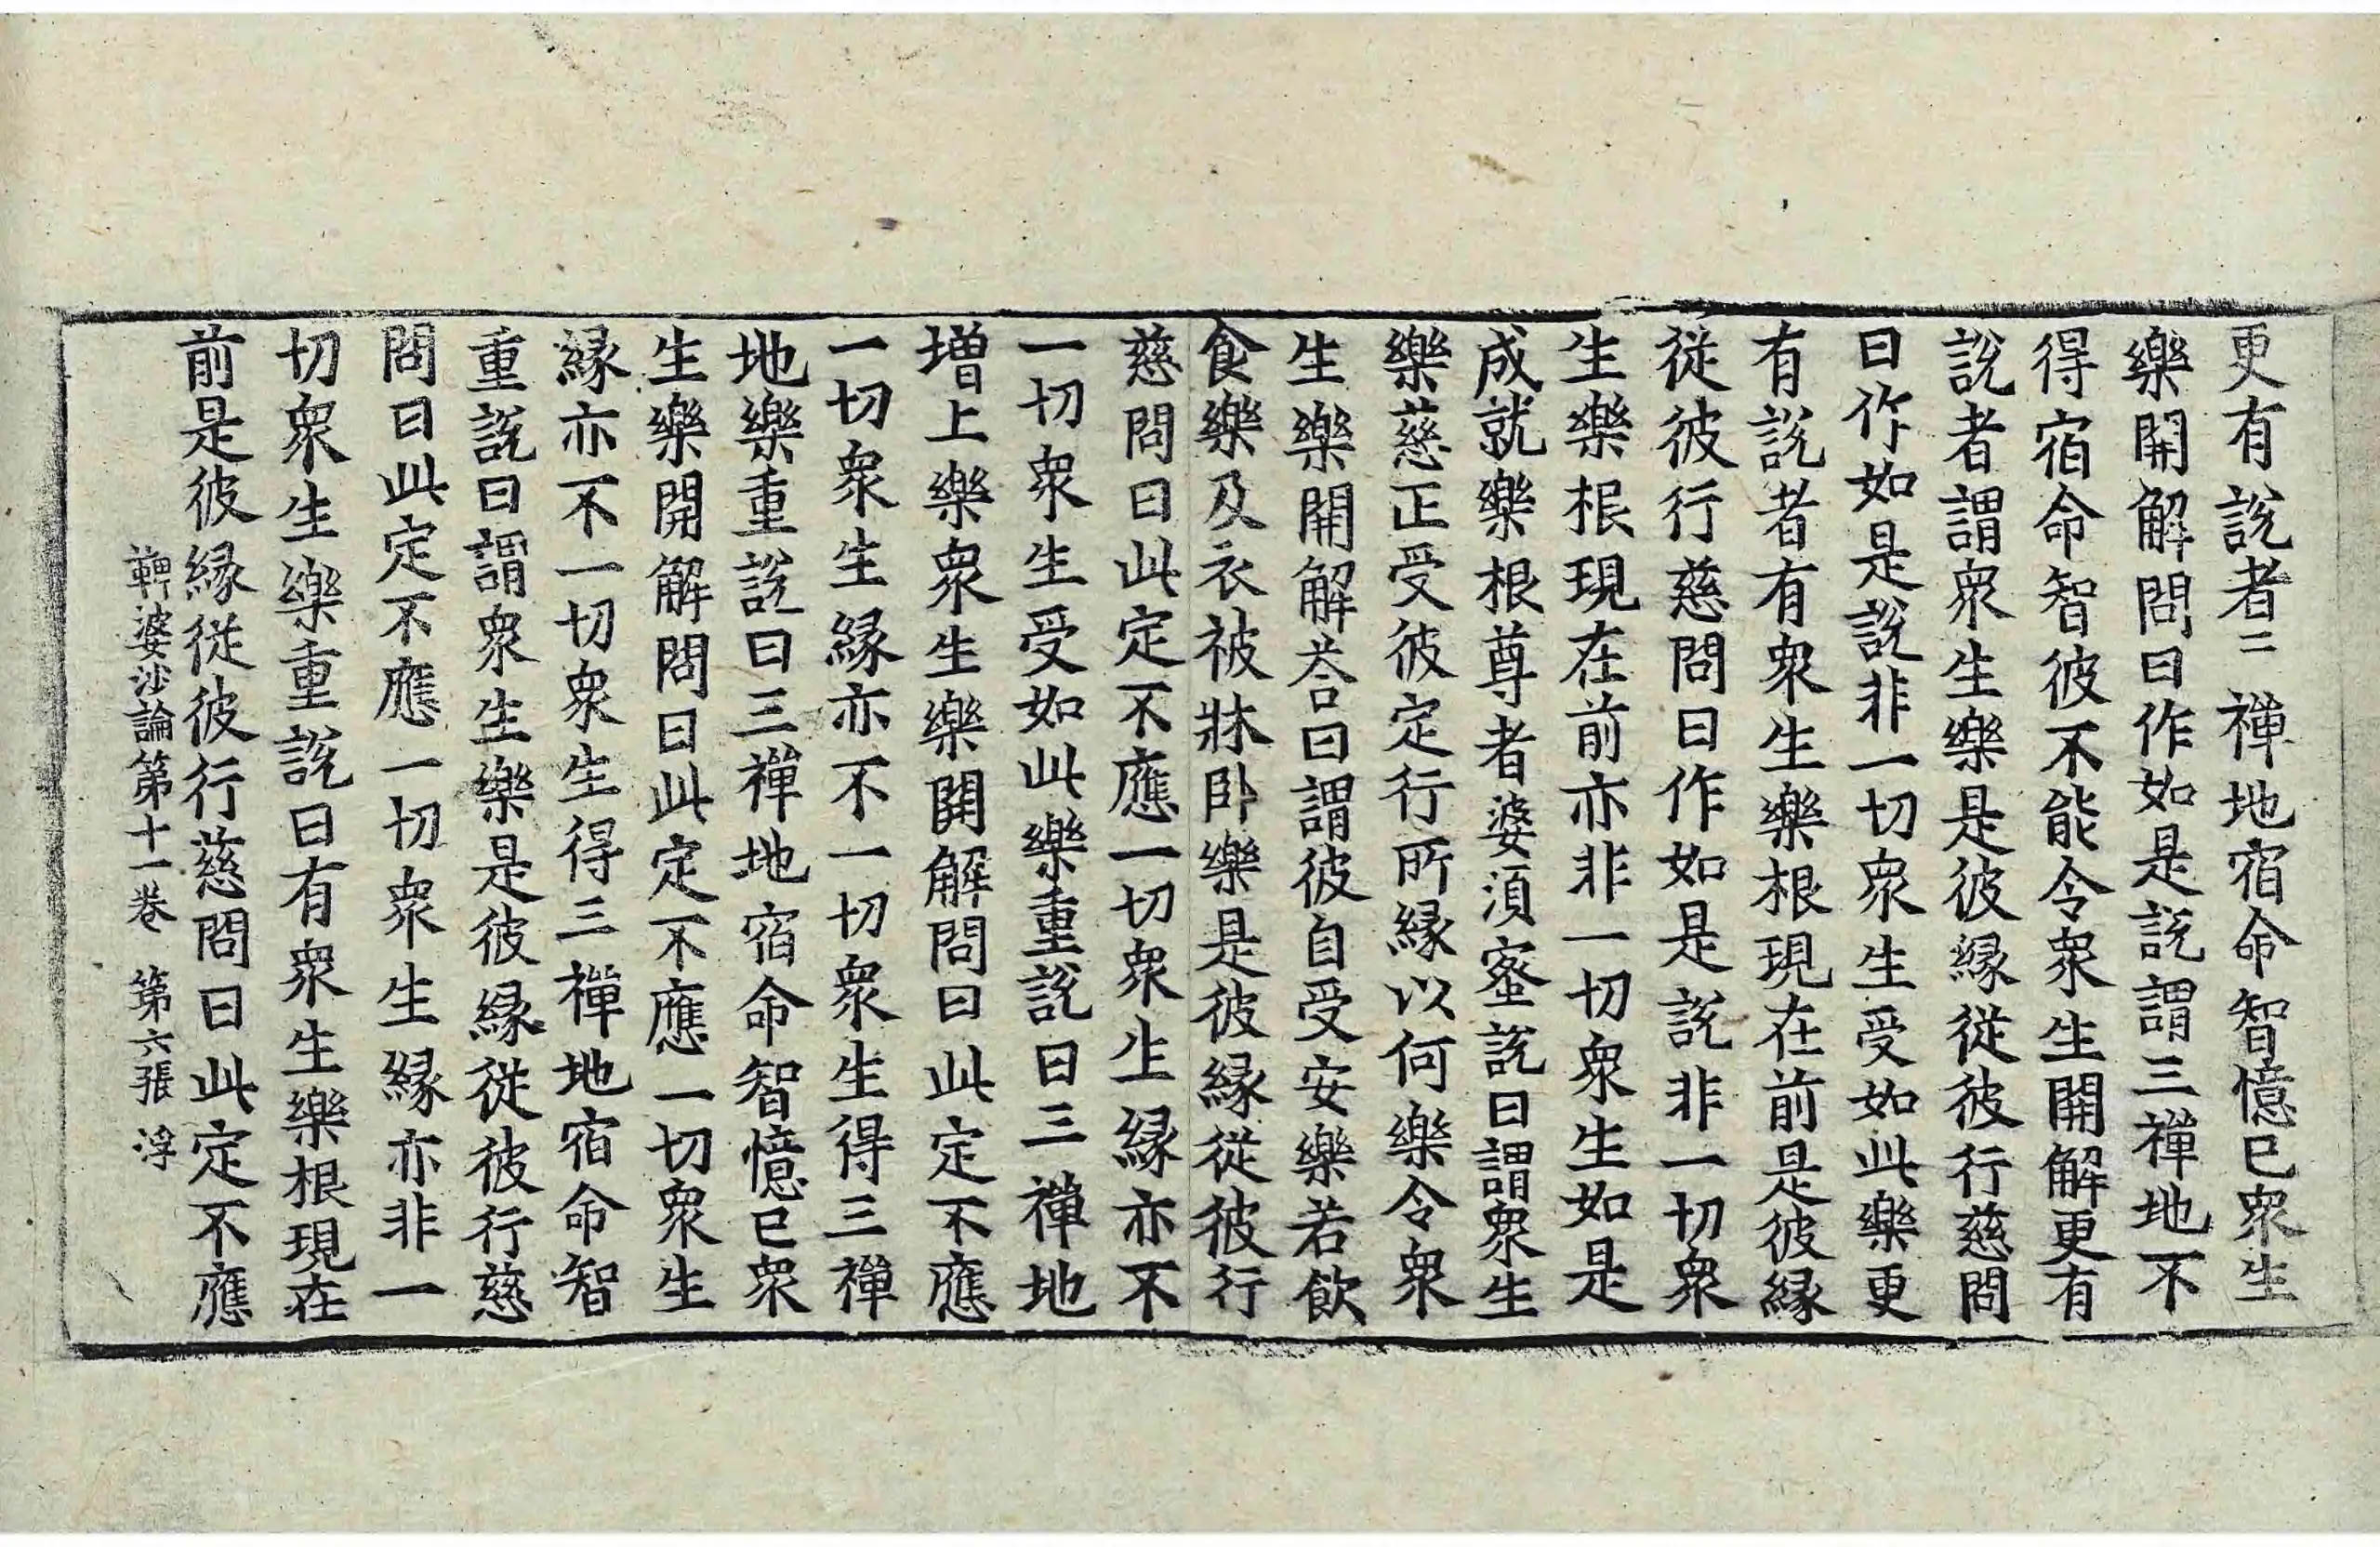 更有說者二禪地宿命智憶已衆生
樂開解問曰作如是說謂三禪地不
得宿命智彼不能令衆生開解更有
說者謂衆生樂是彼緣從彼行慈問
曰作如是說非一切衆生受如此樂更
有說者有衆生樂根現在前是彼緣
從彼行慈問曰作如是說非一切衆
生樂根現在前亦非一切衆生如是
成就樂根尊者婆須蜜說曰謂衆生
樂慈正受彼定行所緣以何樂令衆
生樂開解荅曰謂彼自受安樂若飲
食樂及衣被牀卧樂是彼緣從彼行
慈問曰此定不應一切衆生緣亦不
一切衆生受如此樂重說曰三禪地
增上樂衆生樂開解問曰此定不應
一切衆生緣亦不一切衆生得三禪
地樂重說曰三禪地宿命智憶已衆
生樂開解問曰此定不應一切衆生
緣亦不一切衆生得三禪地宿命智
重說曰謂衆生樂是彼緣從彼行慈
問曰此定不應一切衆生緣亦非一
切衆生樂重說曰有衆生樂根現在
前是彼緣從彼行慈問曰此定不應
鞞婆沙論第十一卷 第六張 浮